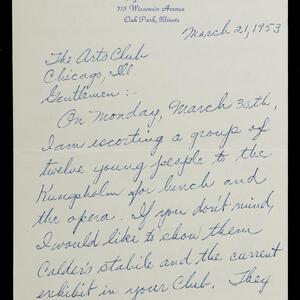 715 Wisconsin Avenue
Oak Park, Illinois
March 21, 1953
The Arts Club
Chicago, Ill.
Gentlemen:-
On Monday, March 30th,
I am escorting a group of
twelve young people to the
Kungsholm for lunch and
the opera. If you don't mind,
I would like to show them
Calder's stabile and the current
exhibit in your Club. They